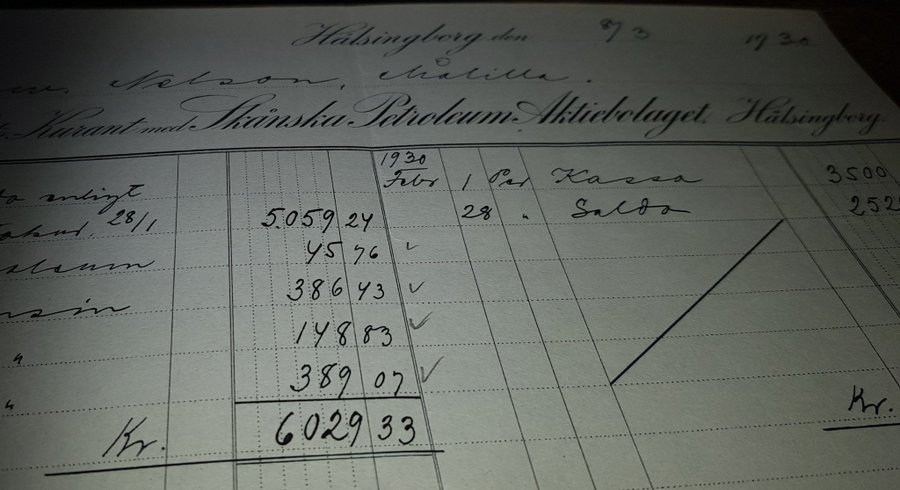 Hälsingborg den 8/3 1930
Nelson, Målilla.
Kurant med Skånska Petroleum Aktiebolaget, Hälsingborg.
1930
enligt Febr 1 Per Kassa 3500
28/1 5.059 24 28 " Saldo 252
45 76
386 43
" 148 83
" 389 07
Kr. 6029 33 Kr.